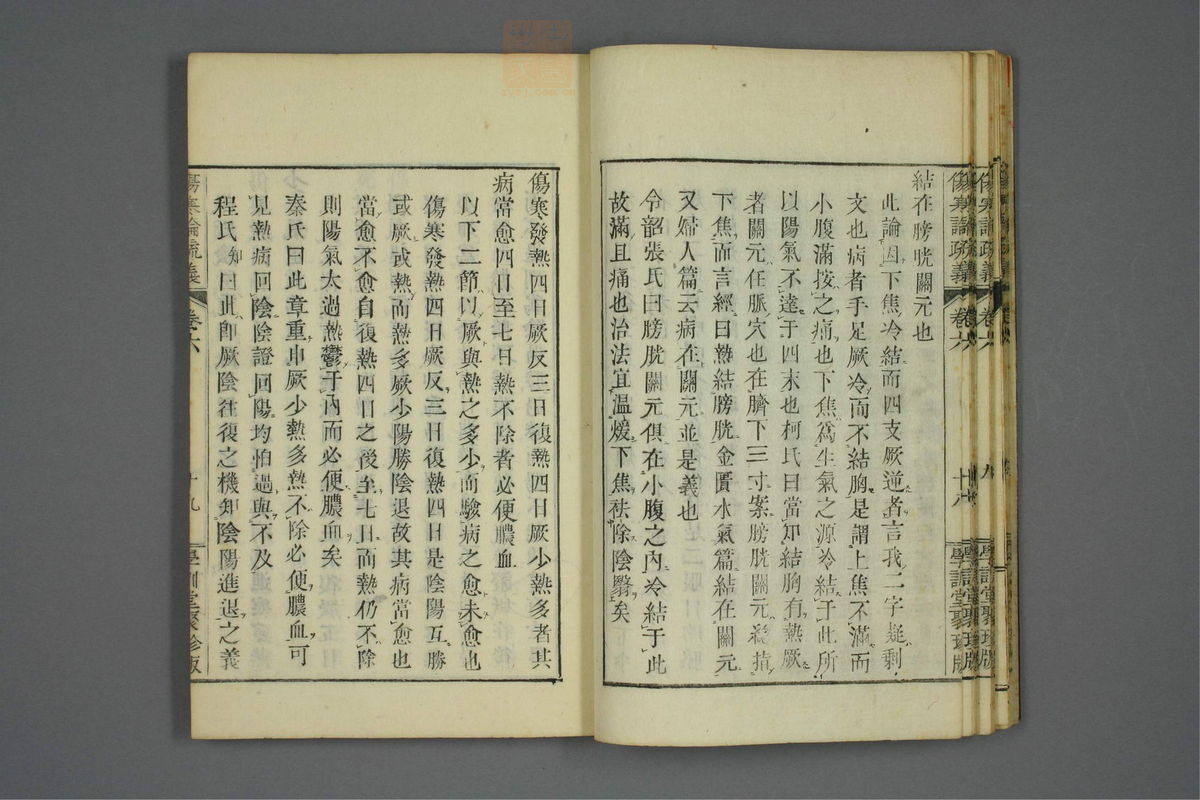 結在膀胱關元也
此論因下焦冷結而四支厥逆者言我二字疑剩
文也病者手足厥冷而不結胸是謂上焦不滿而
小腹滿按之痛也下焦爲生氣之源冷結于此所
以陽氣不達于四末也柯氏曰當知結胸有熱厥
者關元任脈穴也在臍下三寸案膀胱關元總指
下焦而言經曰熱結膀胱金匱水氣篇結在關元
又婦人篇云病在關元並是義也
令韶張氏曰膀胱關元俱在小腹之內冷結于此
故滿且痛也治法宜溫煖下焦祛除陰翳矣
傷寒發熱四日厥反三日復熱四日厥少熱多者其
病當愈四日至七日熱不除者必便膿血
以下二節以厥與熱之多少而驗病之愈未愈也
傷寒發熱四日厥反三日復熱四日是陰陽互勝
或厥或熱而熱多厥少陽勝陰退故其病當愈也
當愈不愈自復熱四日之後至七日而熱仍不除
則陽氣太過熱鬱于內而必便膿血矣
秦氏曰此章重申厥少熱多熱不除必便膿血可
見熱病回陰陰證回陽均怕過與不及
程氏知曰此卽厥陰往復之機知陰陽進退之義
傷寒論疏義
卷六
十九
學訓堂聚珍版